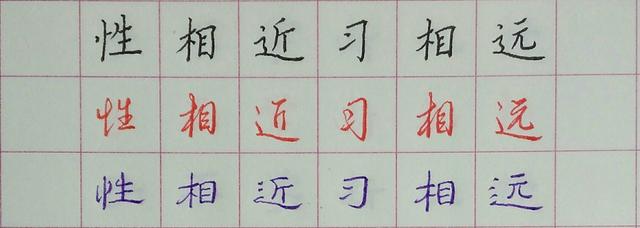 性相近习相远
性相近习相远
性相近习相远